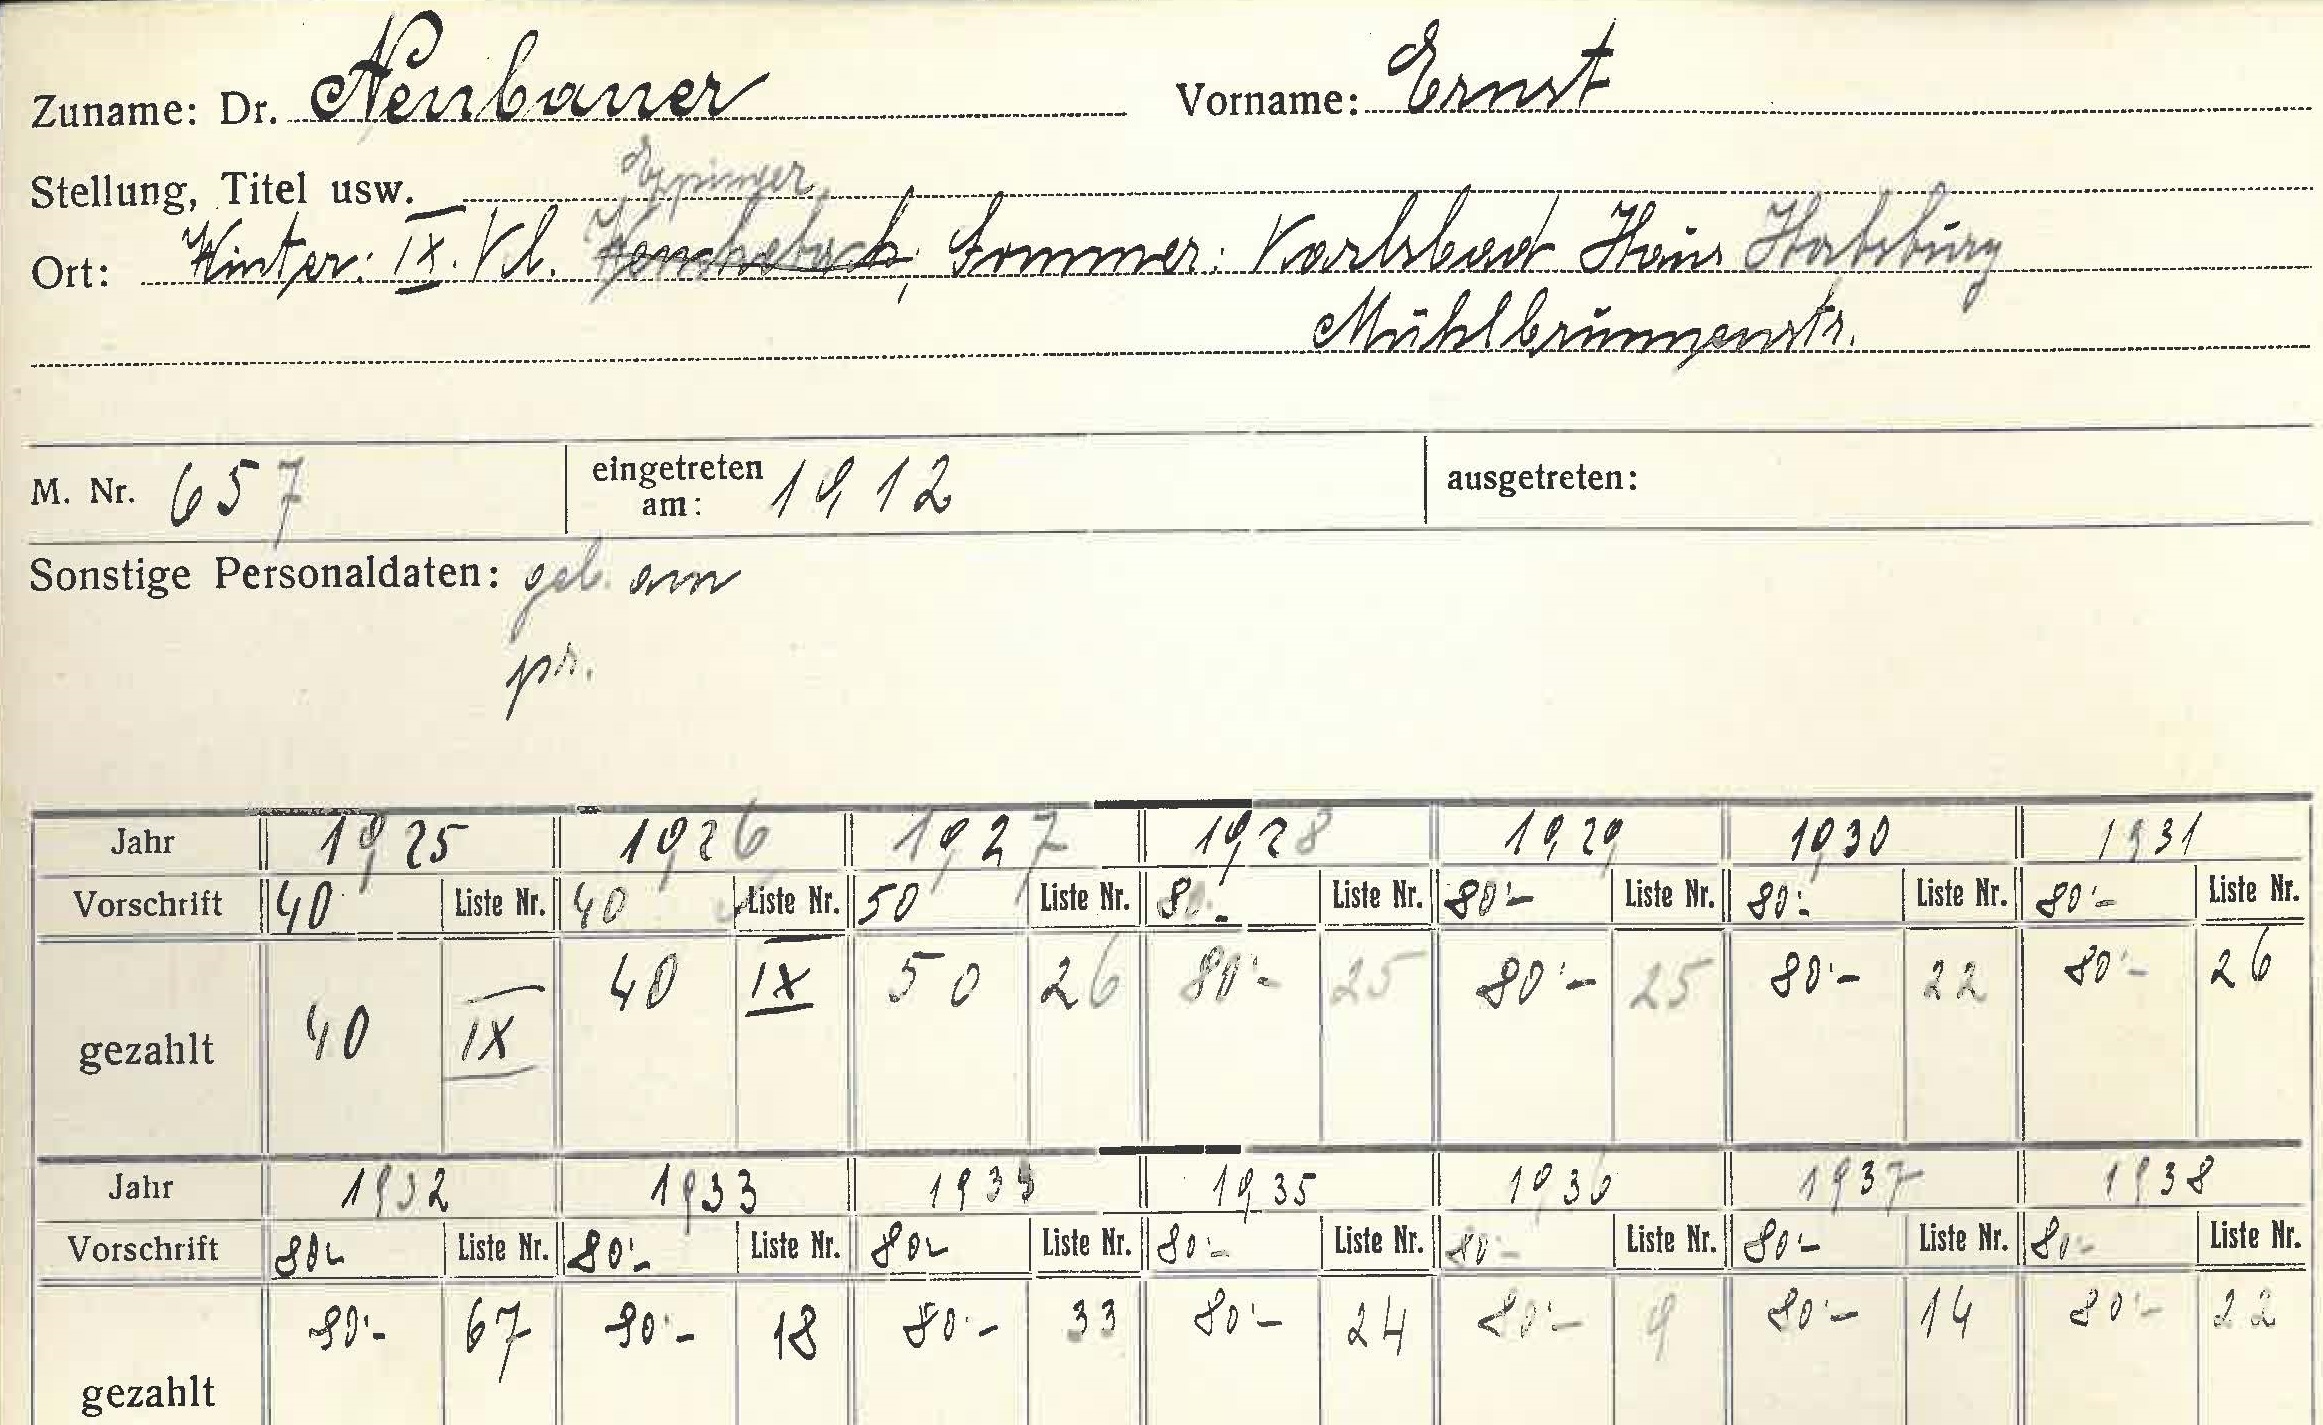 Zuname: Dr. Neubauer Vorname: Ernst
Stellung, Titel usw.
Eppinger,
Ort: Winter: IX. Kl. Wenckebach, Sommer: Karlsbad Haus Habsburg
Mühlbrunnenstr.
M. Nr. 657 eingetreten am: 1912 ausgetreten:
Sonstige Personaldaten: geb. am
pr.
Jahr 1925 1926 1927 1928 1929 1930 1931
Vorschrift 40 Liste Nr. 40 Liste Nr. 50 Liste Nr. 80.- Liste Nr. 80'- Liste Nr. 80'- Liste Nr. 80'- Liste Nr.
gezahlt 40 IX 40 IX 50 26 80'- 25 80'- 25 80'- 22 80'- 26
Jahr 1932 1933 1934 1935 1936 1937 1938
Vorschrift 80'- Liste Nr. 80'- Liste Nr. 80'- Liste Nr. 80'- Liste Nr. 80'- Liste Nr. 80'- Liste Nr. 80'- Liste Nr.
gezahlt 80'- 67 80'- 18 80'- 33 80'- 24 80'- 9 80'- 14 80'- 22